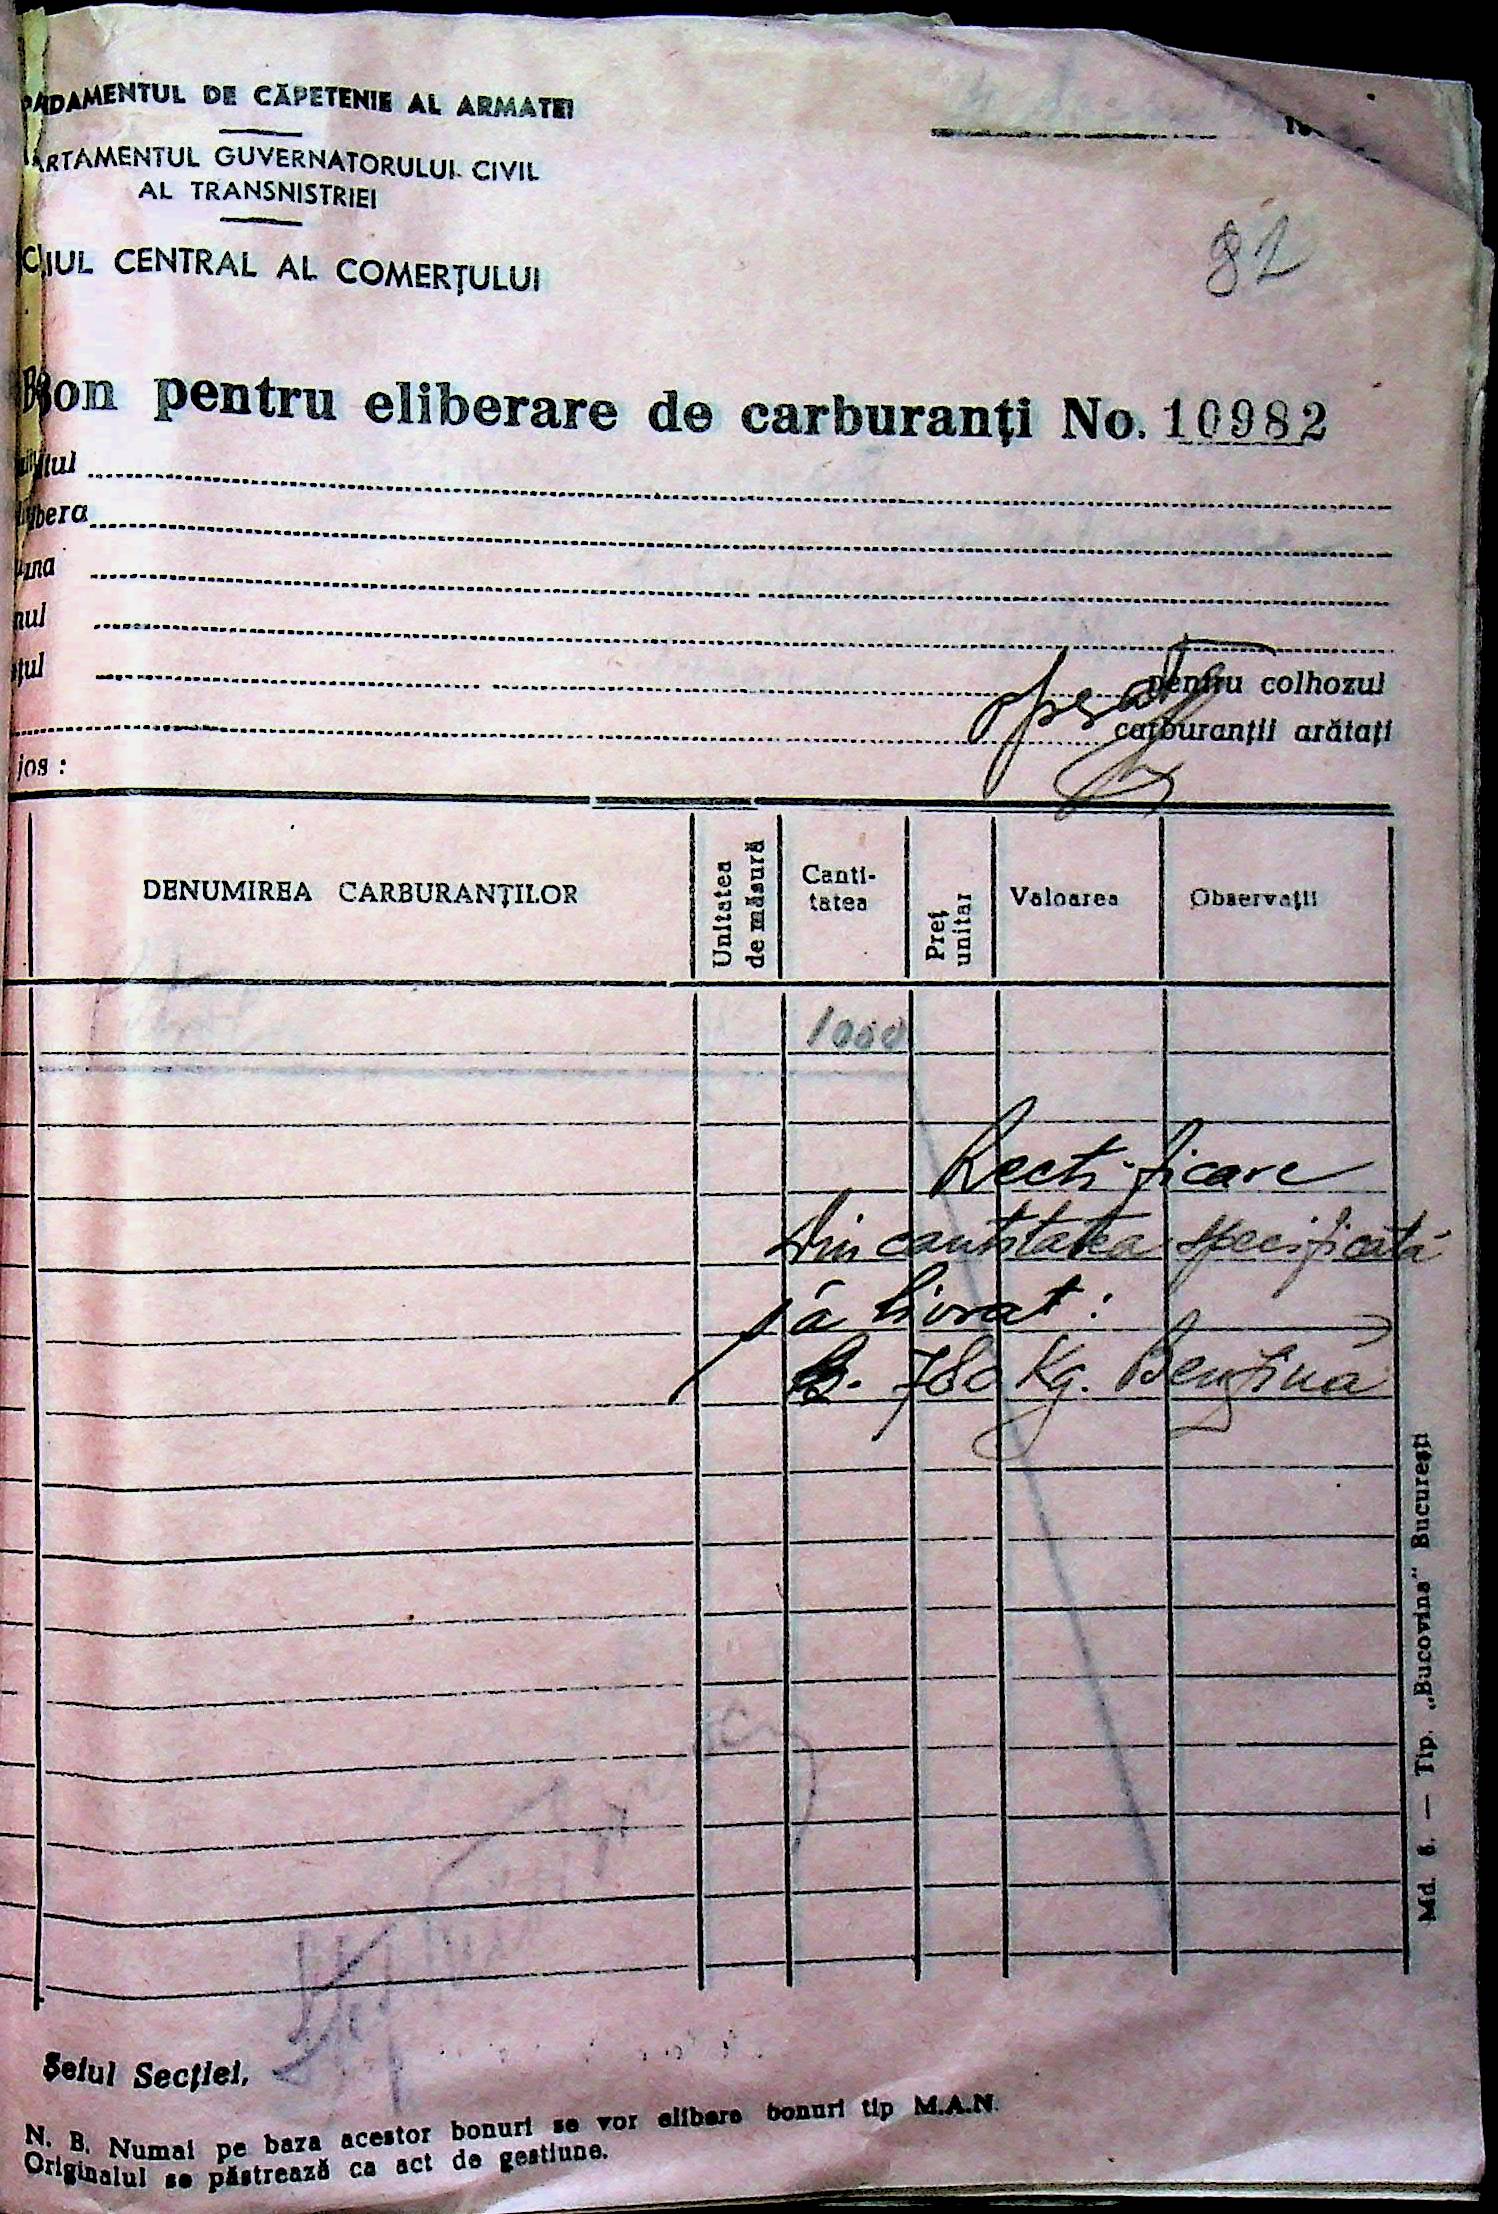 ARDAMENTUL DE CĂPETENIE AL ARMATEI
ARTAMENTUL GUVERNATORULUI CIVIL
AL TRANSNISTRIEI
CIUL CENTRAL AL COMERȚULUI
82
Bon pentru eliberare de carburanți No. 10982
tul
ibera
na
nul
țul
pentru colhozul
carburanții arătați
jos :
operat
DENUMIREA CARBURANȚILOR
Unitatea de măsură
Canti-
tatea
Preț unitar
Valoarea
Observații
1000
Rectificare
Din cantitatea specificată
s'a livrat :
B. 780 Kg. Benzină
Md. 6. — Tip. „Bucovina" București
Șeful Secției,
N. B. Numai pe baza acestor bonuri se vor elibera bonuri tip M.A.N.
Originalul se păstrează ca act de gestiune.